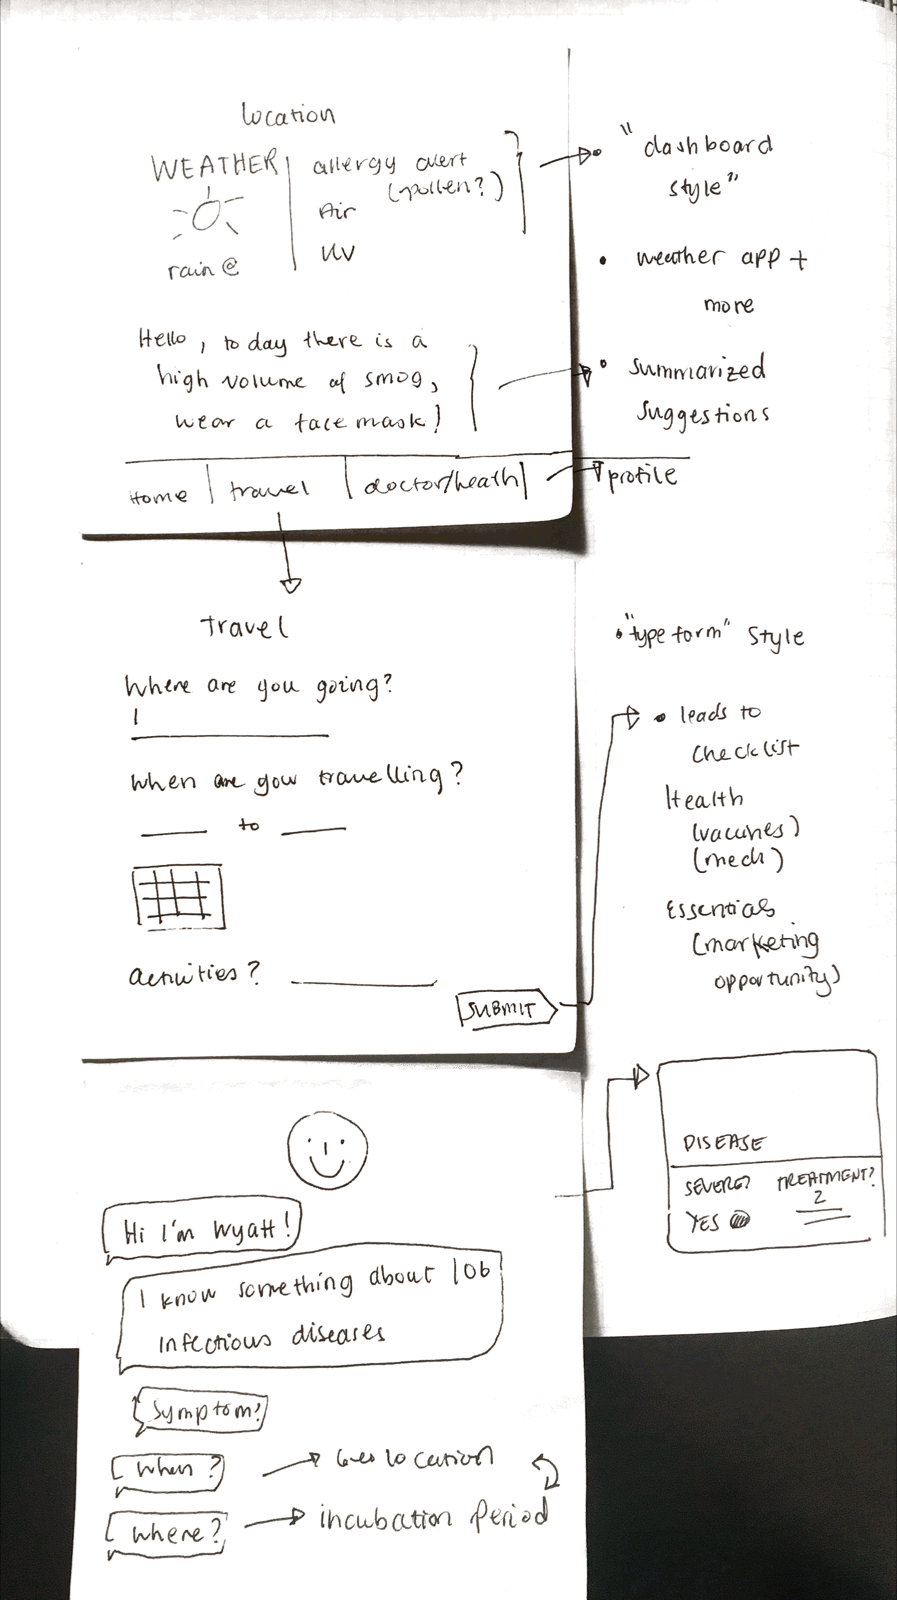 location
WEATHER
rain @
allergy alert
(pollen?)
Air
UV
• "dashboard
style"
• weather app +
more
Hello, today there is a
high volume of smog,
wear a face mask!
• summarized
suggestions
Home | travel | doctor/heath |
profile
travel
• "type form" style
Where are you going?
When are you travelling?
to
activities?
SUBMIT
• leads to
checklist
Health
(vaccines)
(med)
Essentials
(marketing
opportunity)
DISEASE
SEVERE? TREATMENT?
YES
Hi I'm Wyatt!
I know something about 106
infectious diseases
Symptom?
When? Geo location
Where? incubation period